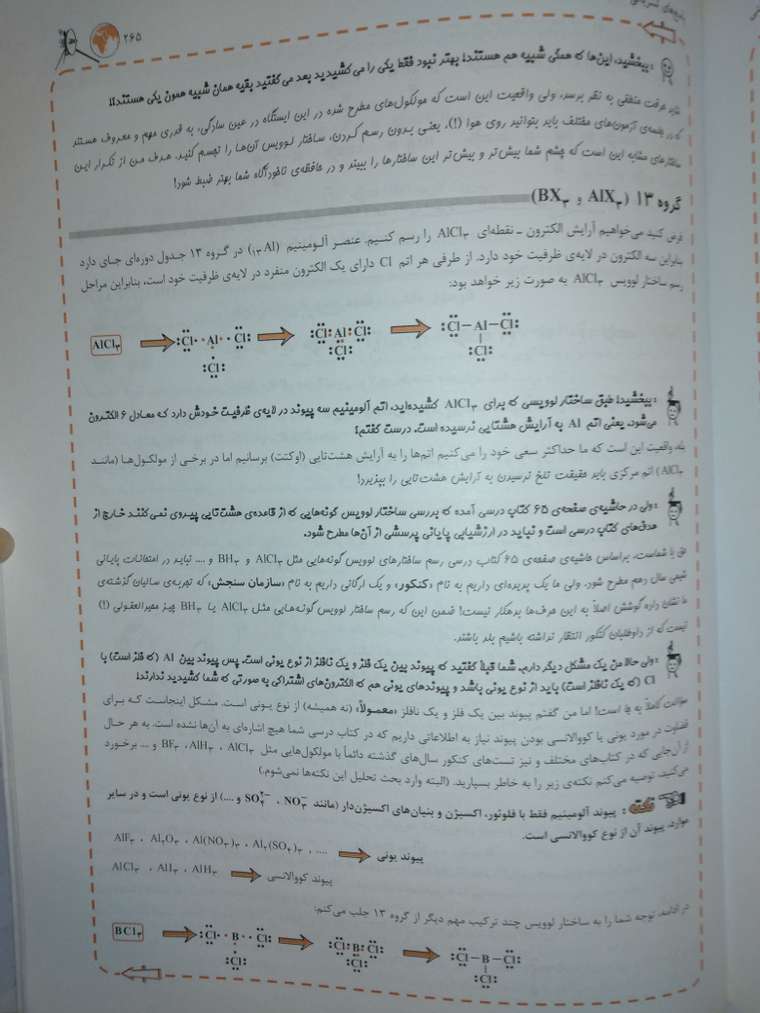 ۲۶۵
: ببخشید، این‌ها که همگی شبیه هم هستند! بهتر نبود فقط یکی را می‌کشیدید بعد می‌گفتید بقیه همان شبیه همون یکی هستند!!
شاید حرفت منطقی به نظر برسد، ولی واقعیت این است که مولکول‌های مطرح شده در این ایستگاه در عین سادگی، به قدری مهم و معروف هستند
که در آزمون‌های مختلف باید بتوانید روی هوا (!)، یعنی بدون رسم کردن، ساختار لوویس آن‌ها را تجسم کنید. هدف من از تکرار این
ساختارهای مشابه این است که چشم شما بیش‌تر و بیش‌تر این ساختارها را ببیند و در حافظه‌ی ناخودآگاه شما بهتر ضبط شود!
گروه ۱۳ (AlX۳ و BX۳)
فرض کنید می‌خواهیم آرایش الکترون ـ نقطه‌ای AlCl۳ را رسم کنیم. عنصر آلومینیم (۱۳Al) در گروه ۱۳ جدول دوره‌ای جای دارد
بنابراین سه الکترون در لایه‌ی ظرفیت خود دارد. از طرفی هر اتم Cl دارای یک الکترون منفرد در لایه‌ی ظرفیت خود است، بنابراین مراحل
رسم ساختار لوویس AlCl۳ به صورت زیر خواهد بود:
AlCl۳ :Cl· ·Al· ·Cl: :Cl:Al:Cl: :Cl—Al—Cl:
:Cl: :Cl: :Cl:
: ببخشید! طبق ساختار لوویسی که برای AlCl۳ کشیده‌اید، اتم آلومینیم سه پیوند در لایه‌ی ظرفیت خودش دارد که معادل ۶ الکترون
می‌شود، یعنی اتم Al به آرایش هشتایی نرسیده است. درست گفتم؟
بله، واقعیت این است که ما حداکثر سعی خود را می‌کنیم اتم‌ها را به آرایش هشت‌تایی (اوکتت) برسانیم اما در برخی از مولکول‌ها (مانند
AlCl۳) اتم مرکزی باید حقیقت تلخ نرسیدن به آرایش هشت‌تایی را بپذیرد!
: ولی در حاشیه‌ی صفحه‌ی ۶۵ کتاب درسی آمده که بررسی ساختار لوویس گونه‌هایی که از قاعده‌ی هشت‌تایی پیروی نمی‌کنند خارج از
هدف‌های کتاب درسی است و نباید در ارزشیابی پایانی پرسشی از آن‌ها مطرح شود.
حق با شماست. براساس حاشیه‌ی صفحه‌ی ۶۵ کتاب درسی رسم ساختارهای لوویس گونه‌هایی مثل AlCl۳ و BH۳ و .... نباید در امتحانات پایانی
شیمی سال دهم مطرح شود. ولی ما یک پدیده‌ای داریم به نام «کنکور» و یک ارگانی داریم به نام «سازمان سنجش» که تجربه‌ی سالیان گذشته‌ی
ما نشان داده گوشش اصلاً به این حرف‌ها بدهکار نیست! ضمن این که رسم ساختار لوویس گونه‌هایی مثل AlCl۳ یا BH۳ چیز محیرالعقولی (!)
نیست که از داوطلبان کنکور انتظار نداشته باشیم بلد باشند.
: ولی حالا من یک مشکل دیگر دارم. شما قبلاً گفتید که پیوند بین یک فلز و یک نافلز از نوع یونی است. پس پیوند بین Al (که فلز است) با
Cl (که یک نافلز است) باید از نوع یونی باشد و پیوندهای یونی هم که الکترون‌های اشتراکی به صورتی که شما کشیدید ندارند!
سؤالت کاملاً به جا است! اما من گفتم پیوند بین یک فلز و یک نافلز «معمولاً» (نه همیشه) از نوع یونی است. مشکل اینجاست که برای
قضاوت در مورد یونی یا کووالانسی بودن پیوند نیاز به اطلاعاتی داریم که در کتاب درسی شما هیچ اشاره‌ای به آن‌ها نشده است. به هر حال
از آن‌جایی که در کتاب‌های مختلف و نیز تست‌های کنکور سال‌های گذشته دائماً با مولکول‌هایی مثل AlCl۳ ، AlH۳ ، BF۳ و ... برخورد
می‌کنید، توصیه می‌کنم نکته‌ی زیر را به خاطر بسپارید. (البته وارد بحث تحلیل این نکته‌ها نمی‌شوم.)
نکته : پیوند آلومینیم فقط با فلوئور، اکسیژن و بنیان‌های اکسیژن‌دار (مانند NO۳⁻ ، SO۴²⁻ و ....) از نوع یونی است و در سایر
موارد، پیوند آن از نوع کووالانسی است.
AlF۳ ، Al۲O۳ ، Al(NO۳)۳ ، Al۲(SO۴)۳ ، .... پیوند یونی
AlCl۳ ، AlI۳ ، AlH۳ پیوند کووالانسی
در ادامه، توجه شما را به ساختار لوویس چند ترکیب مهم دیگر از گروه ۱۳ جلب می‌کنم:
BCl۳ :Cl· ·B· ·Cl: :Cl:B:Cl: :Cl—B—Cl:
:Cl: :Cl: :Cl: